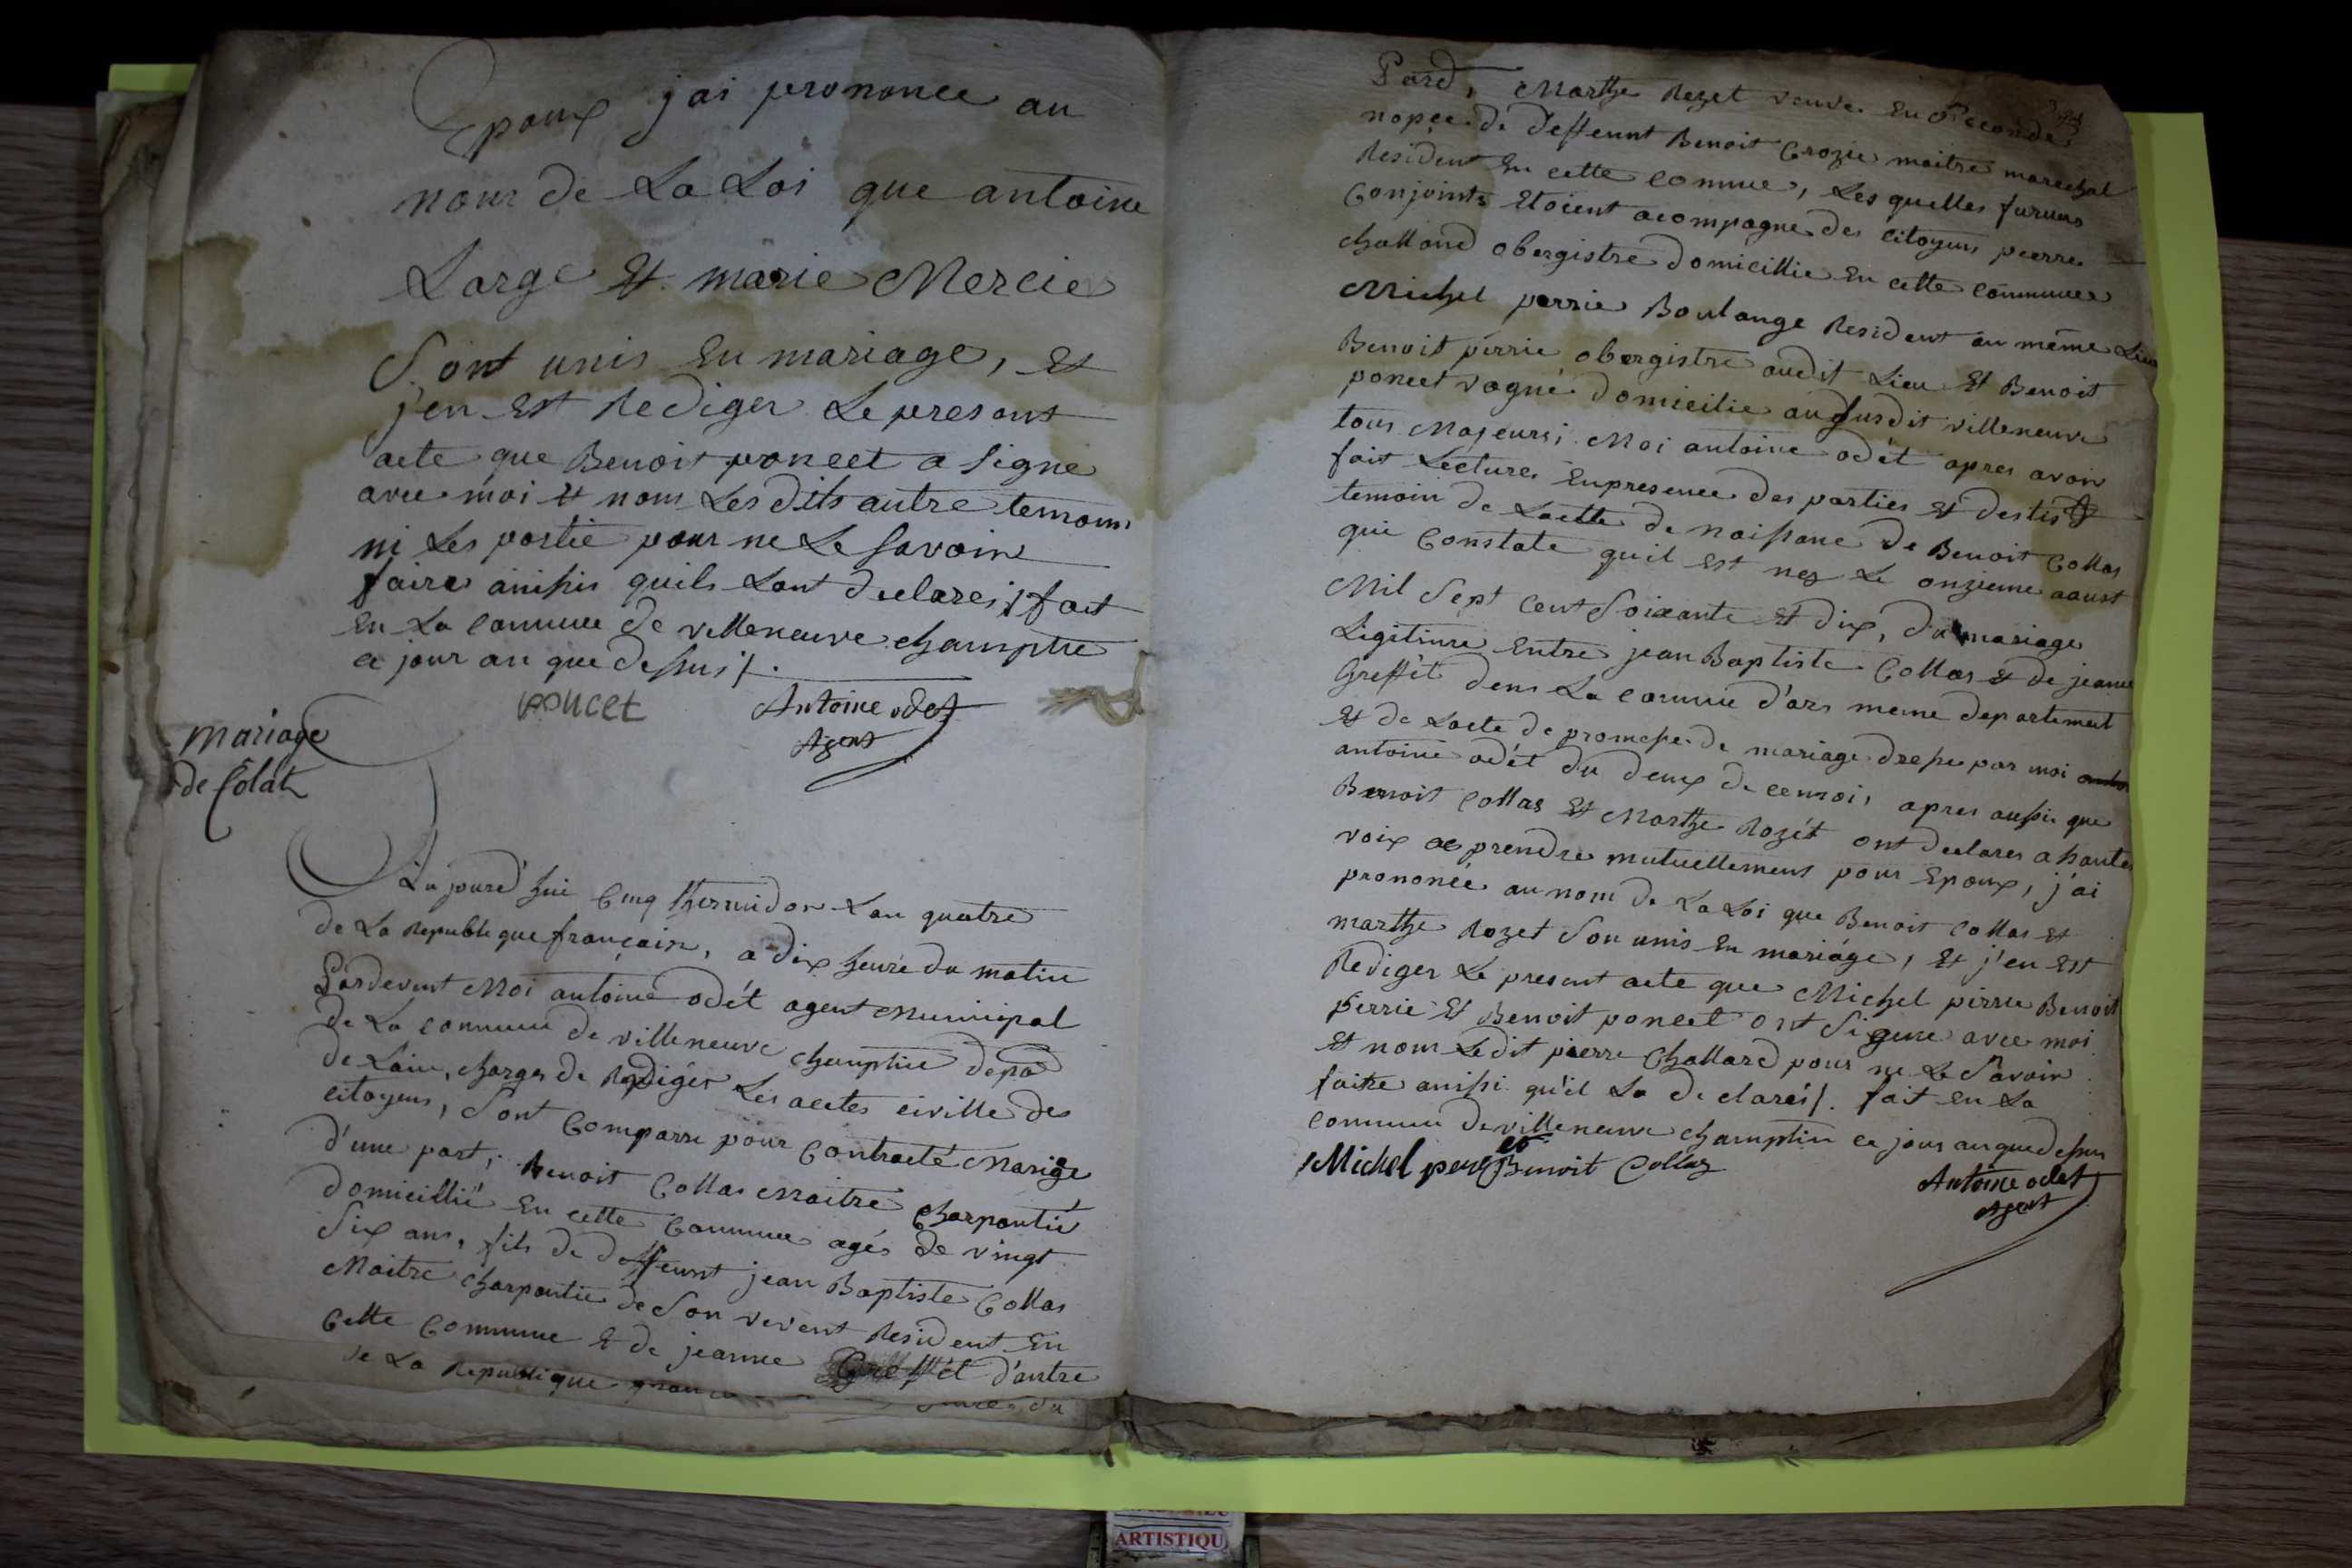 Epoux j'ai prononcé au
nom de La Loi que antoine
Large Et marie Mercie
Sont unis En mariage, Et
j'en Est Rediger Le present
acte que Benoit poncet a signe
avec moi Et nom Les dits autre temoins
ni Les partie pour ne Le Savoir
faire ainssis quils Lont declares ; fait
En La comune de villeneuve champtre
ce jour an que dessus /.
poncet
Antoine odet
Agent
mariage
de Colat
Aujourd'hui Cinq thermidor Lan quatre
de La Republique française, a dix heure du matin
Pardevent Moi antoine odét agent Municipal
de La commune de villeneuve champtue depa
de Lain, charges de Rediger Les acctes civille des
citoyens, Sont Comparru pour Contracté Mariage
d'une part, Benoit Collas Maitre Charpantié
domicillié En cette Commune agés de vingt
Six ans, fils de deffeunt jean Baptiste Collas
Maitre charpantie de Son vivent Resident En
Cette Commune Et de jeanne Greffét d'autre
de La Republique du
Pard, Marthe Rozet veuve En Seconde
nopce de deffeunt Benoit Crozie maitre marechal
Resident En cette Comune, Les quelles futures
Conjoints Etoient acompagne des citoyens pierre
challand obergistre domicillie En cette Commune
Michel perrie Boulange Resident au même Lieu
Benoit perrie obergistre audit Lieu Et Benoit
poncet vagné domicilie au susdit villeneuve
tous Majeurs ; Moi antoine odét apres avoir
fait Lecture Enpresence des parties Et desdits
temoin de Lactte de naissanc de Benoit Collas
qui Constate quil Est nez Le onzieme aoust
Mil Sept Cent Soixante Et dix, du mariage
Legitime Entre jean Baptiste Collas Et de jeanne
Greffét dens La comune d'ars meme departement
Et de Lacte de promesse de mariage dresse par moi
antoine odét du deux de cemois apres aussis que
Benoit Collas Et Marthe Rozét ont declares a haute
voix prendre mutuellement pour Epoux, j'ai
prononcé au nom de La Loi que Benoit Collas Et
marthe Rozet Son unis En mariage, Et j'en Est
Rediger Le present acte que Michel pirrie Benoit
perrie Et Benoit poncet ont Signe avec moi
Et nom Ledit pierre Challard pour ne Le Savoir
faitre ainssi qu'il La declarés /. fait En La
Commune de villeneuve champtin ce jour an que dessus
Michel Benoit Collas
Antoine odet
Agent
ARTISTIQU